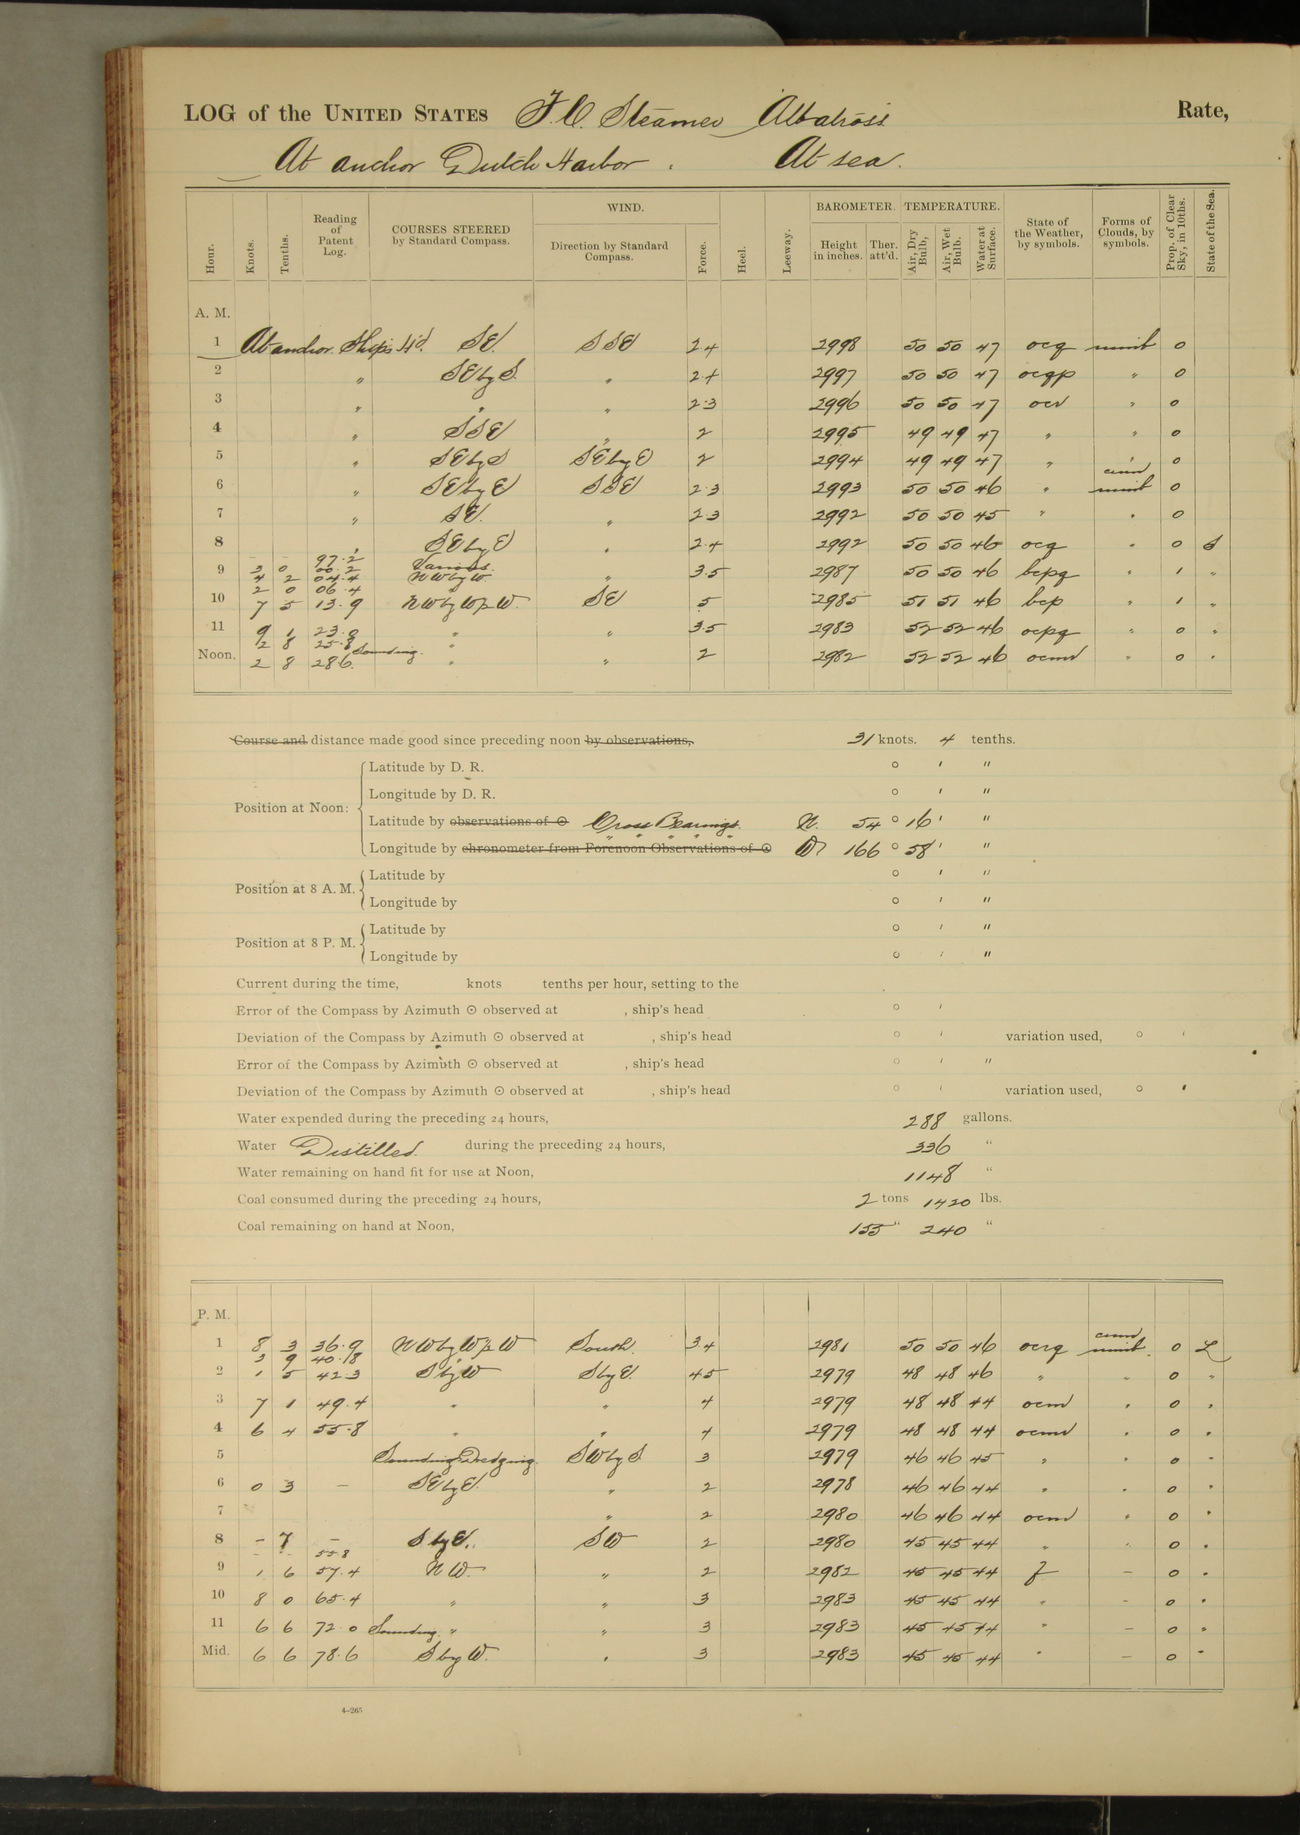 LOG of the UNITED STATES F.C. Steamer Albatross Rate,
At anchor Dutch Harbor. At sea.
Hour. Knots. Tenths. Reading of Patent Log. COURSES STEERED by Standard Compass. WIND. Direction by Standard Compass. Force. Heel. Leeway. BAROMETER. Height in inches. Ther. att'd. TEMPERATURE. Air, Dry Bulb. Air, Wet Bulb. Water at Surface. State of the Weather, by symbols. Forms of Clouds, by symbols. Prop. of Clear Sky, in 10ths. State of the Sea.
A. M.
1 At anchor. Ship's H'd. SE. SSE 2.4 2998 50 50 47 ocq nimb 0
2 " SE by S. " 2.4 2997 50 50 47 ocqp " 0
3 " " " 2.3 2996 50 50 47 " 0
4 " SSE " 2 2995 49 49 47 " " 0
5 " SE by S SE by E 2 2994 49 49 47 " " 0
6 " SE by E SSE 2.3 2993 50 50 46 " nimb 0
7 " SE. " 2.3 2992 50 50 45 " " 0
8 " SE by E " 2.4 2992 50 50 46 ocq " 0 S
- - 97.2
3 0 00.2 Various.
9 4 2 04.4 NW by W " 3.5 2987 50 50 46 bcpq " 1 "
2 0 06.4 "
10 7 5 13.9 NW by W½W. SE 5 2985 51 51 46 bcp " 1 "
11 9 1 23.0 " " 3.5 2983 52 52 46 ocpq " 0 "
2 8 25.8 Sounding. "
Noon. 2 8 28.6 " " 2 2982 52 52 46 " 0 "
Course and distance made good since preceding noon by observations, 31 knots. 4 tenths.
Position at Noon:
Latitude by D. R. ° ′ ″
Longitude by D. R. ° ′ ″
Latitude by observations of ☉ Cross Bearings. N. 54 ° 16 ′ ″
Longitude by chronometer from Forenoon Observations of ☉ " " " " " W 166 ° 58 ′ ″
Position at 8 A. M.
Latitude by ° ′ ″
Longitude by ° ′ ″
Position at 8 P. M.
Latitude by ° ′ ″
Longitude by ° ′ ″
Current during the time, knots tenths per hour, setting to the
Error of the Compass by Azimuth ☉ observed at , ship's head ° ′
Deviation of the Compass by Azimuth ☉ observed at , ship's head ° ′ variation used, ° ′
Error of the Compass by Azimuth ☉ observed at , ship's head ° ′ ″
Deviation of the Compass by Azimuth ☉ observed at , ship's head ° ′ variation used, ° ′
Water expended during the preceding 24 hours, 288 gallons.
Water Distilled during the preceding 24 hours, 336 "
Water remaining on hand fit for use at Noon, 1148 "
Coal consumed during the preceding 24 hours, 2 tons 1420 lbs.
Coal remaining on hand at Noon, 155 " 240 "
P. M.
1 8 3 36.9 NW by W½W South. 3.4 2981 50 50 46 ocrq nimb. 0 L
3 9 40.8 "
2 1 5 42.3 S by W S by E. 4.5 2979 48 48 46 " " 0 "
3 7 1 49.4 " " 4 2979 48 48 44 ocm " 0 "
4 6 4 55.8 " " 4 2979 48 48 44 " 0 "
5 Sounding Dredging SW by S. 3 2979 46 46 45 " " 0 "
6 0 3 - SE by E. " 2 2978 46 46 44 " " 0 "
7 " 2 2980 46 46 44 " 0 "
8 - 7 - S by E. SW 2 2980 45 45 44 " " 0 "
- - 55.8
9 1 6 57.4 NW. " 2 2982 45 45 44 f - 0 "
10 8 0 65.4 " " 3 2983 45 45 44 " - 0 "
11 6 6 72.0 Sounding. " " 3 2983 45 45 44 " - 0 "
Mid. 6 6 78.6 S by W. " 3 2983 45 45 44 " - 0 "
4-265